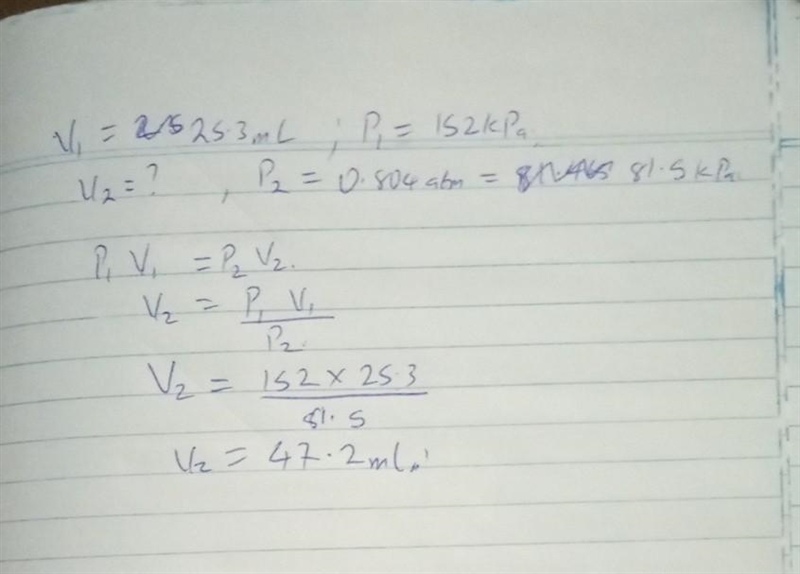 V₁ = 25.3mL ; P₁ = 152kPa
V₂ = ? , P₂ = 0.804 atm = 81.5 kPa
P₁ V₁ = P₂ V₂.
V₂ = P₁ V₁
P₂.
V₂ = 152 × 25.3
81.5
V₂ = 47.2mL